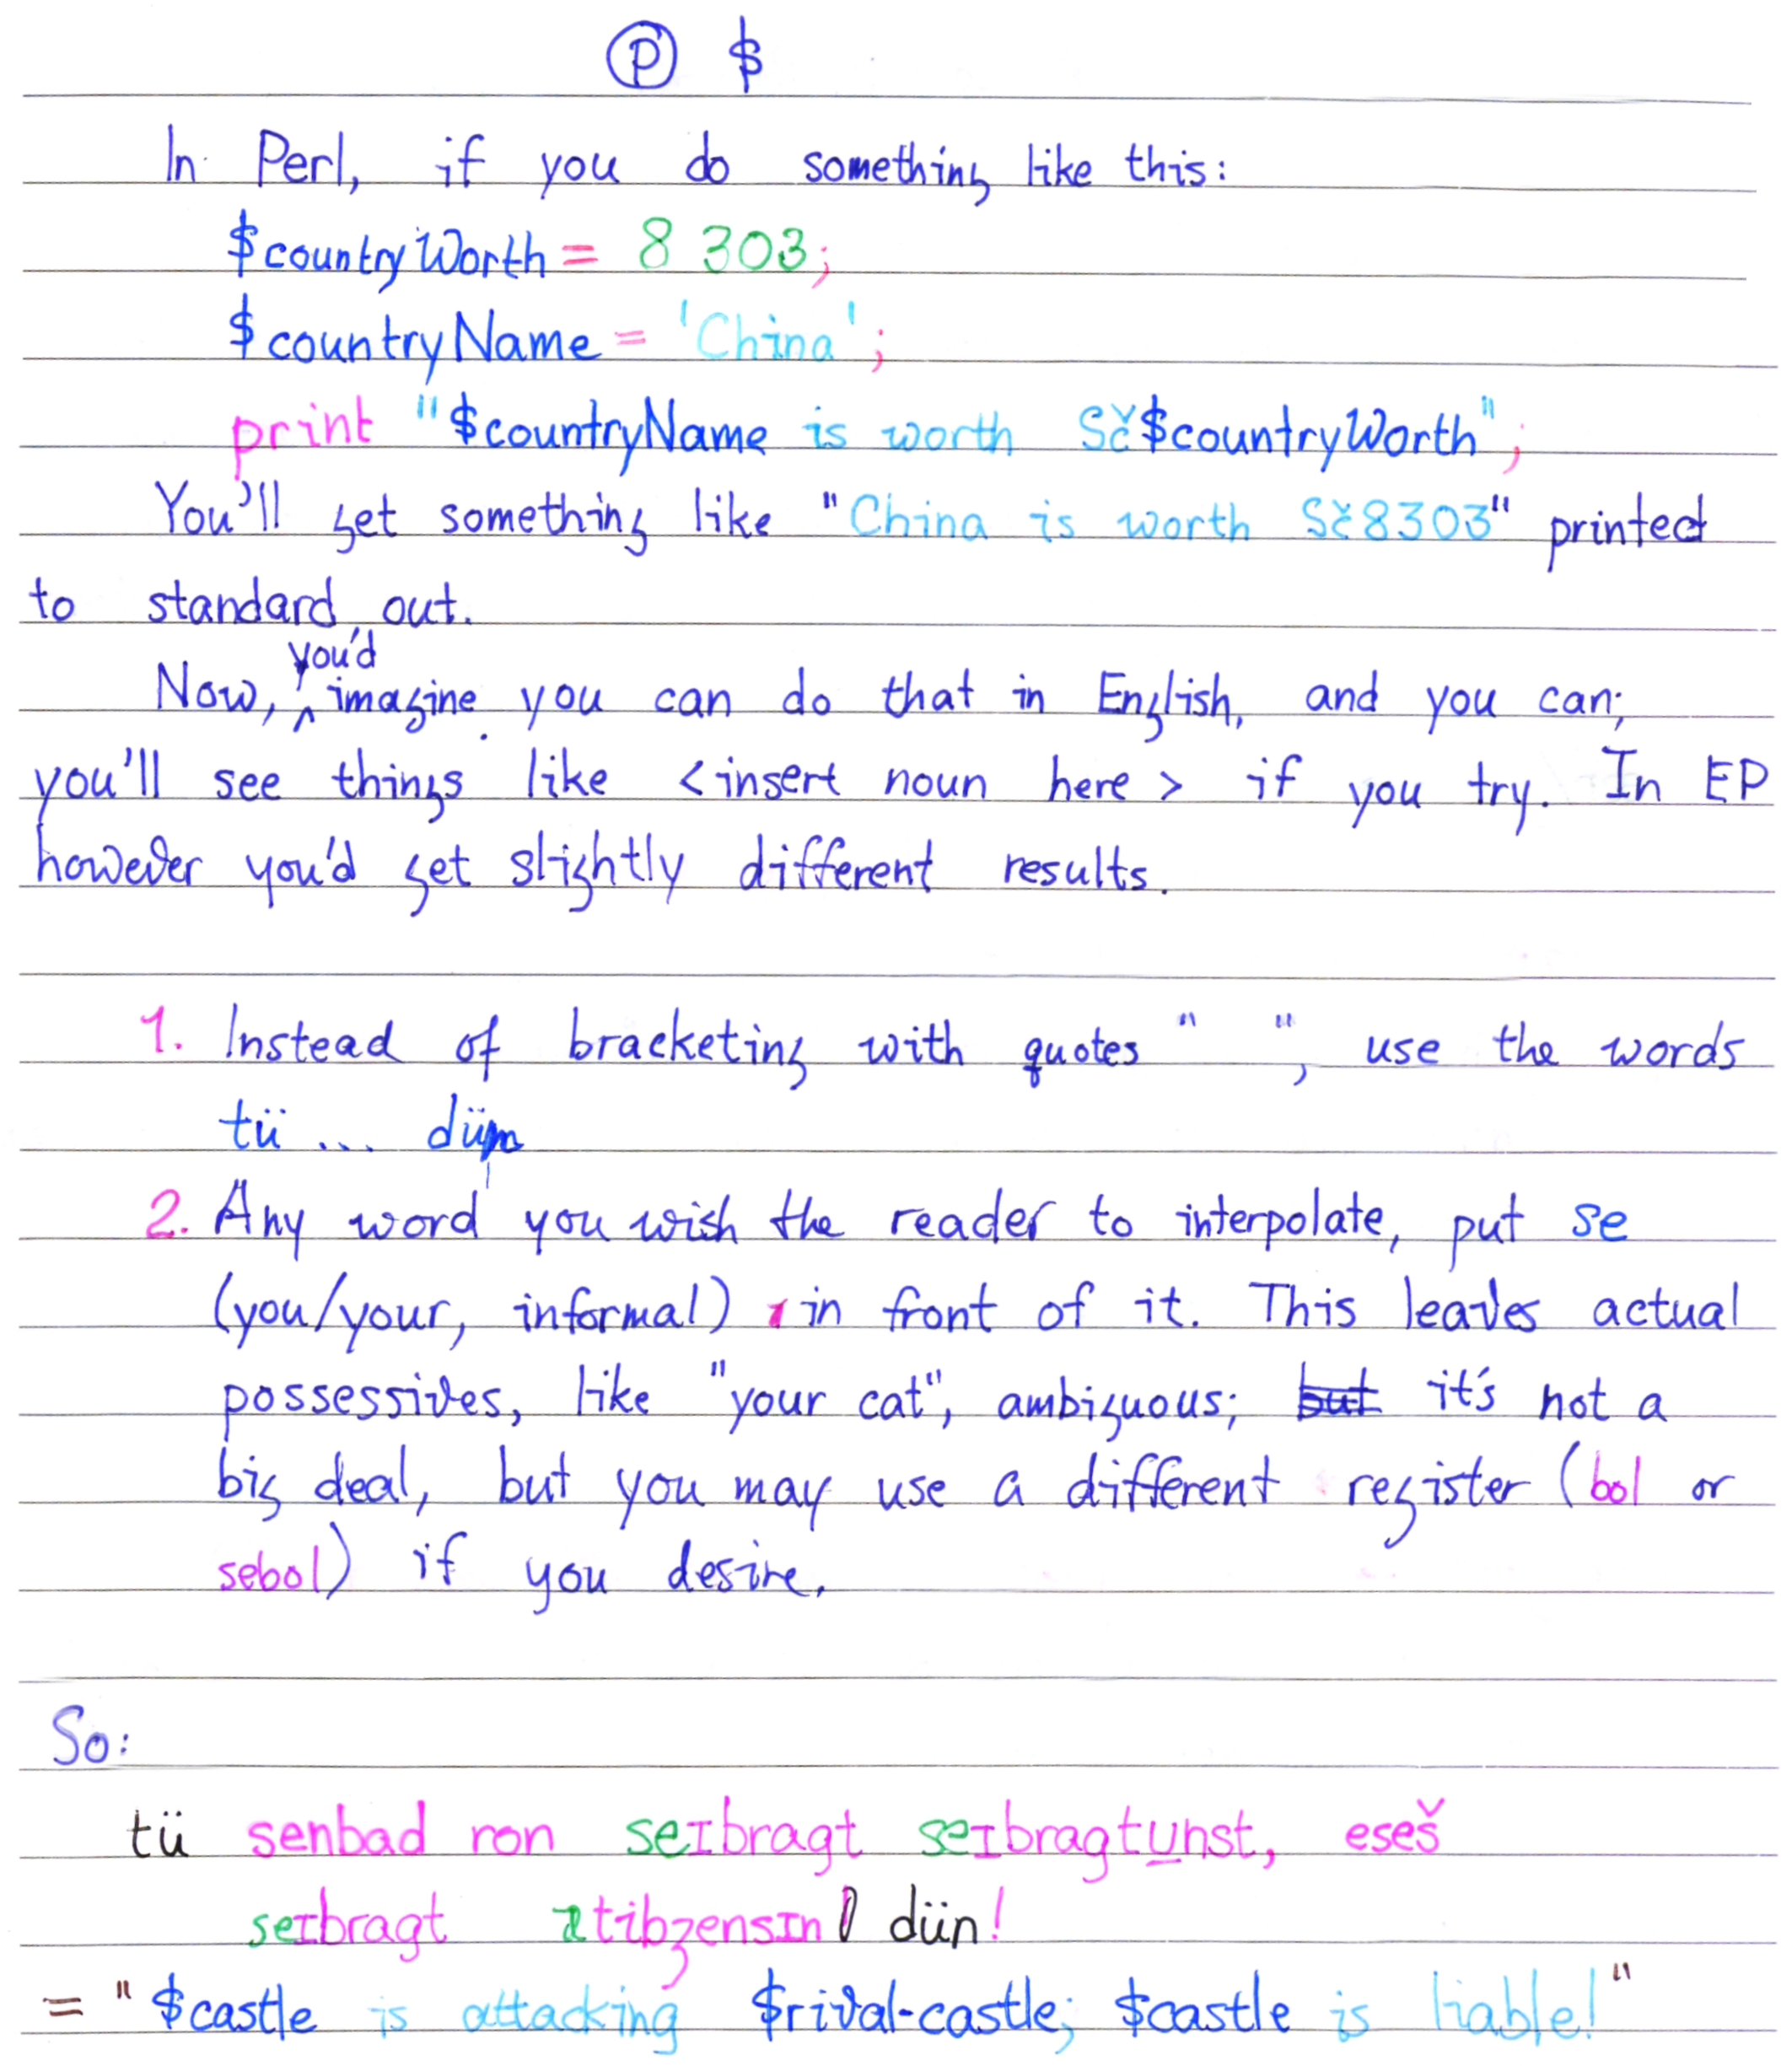 Ⓟ $
In Perl, if you do something like this:
$countryWorth = 8 303;
$countryName = 'China';
print "$countryName is worth Sč$countryWorth";
You'll get something like "China is worth Sč8303" printed
to standard out.
you'd
Now, ^ imagine you can do that in English, and you can;
you'll see things like <insert noun here> if you try. In EP
however you'd get slightly different results.
1. Instead of bracketing with quotes " ", use the words
tü ... dün
2. Any word you wish the reader to interpolate, put se
(you/your, informal) in front of it. This leaves actual
possessives, like "your cat", ambiguous; but it's not a
big deal, but you may use a different register (bol or
sebol) if you desire.
So:
tü senbad ron seɪbragt seɪbragtunst, eseš
seɪbragt dün!
= "$castle is attacking $rival-castle; $castle is liable!"